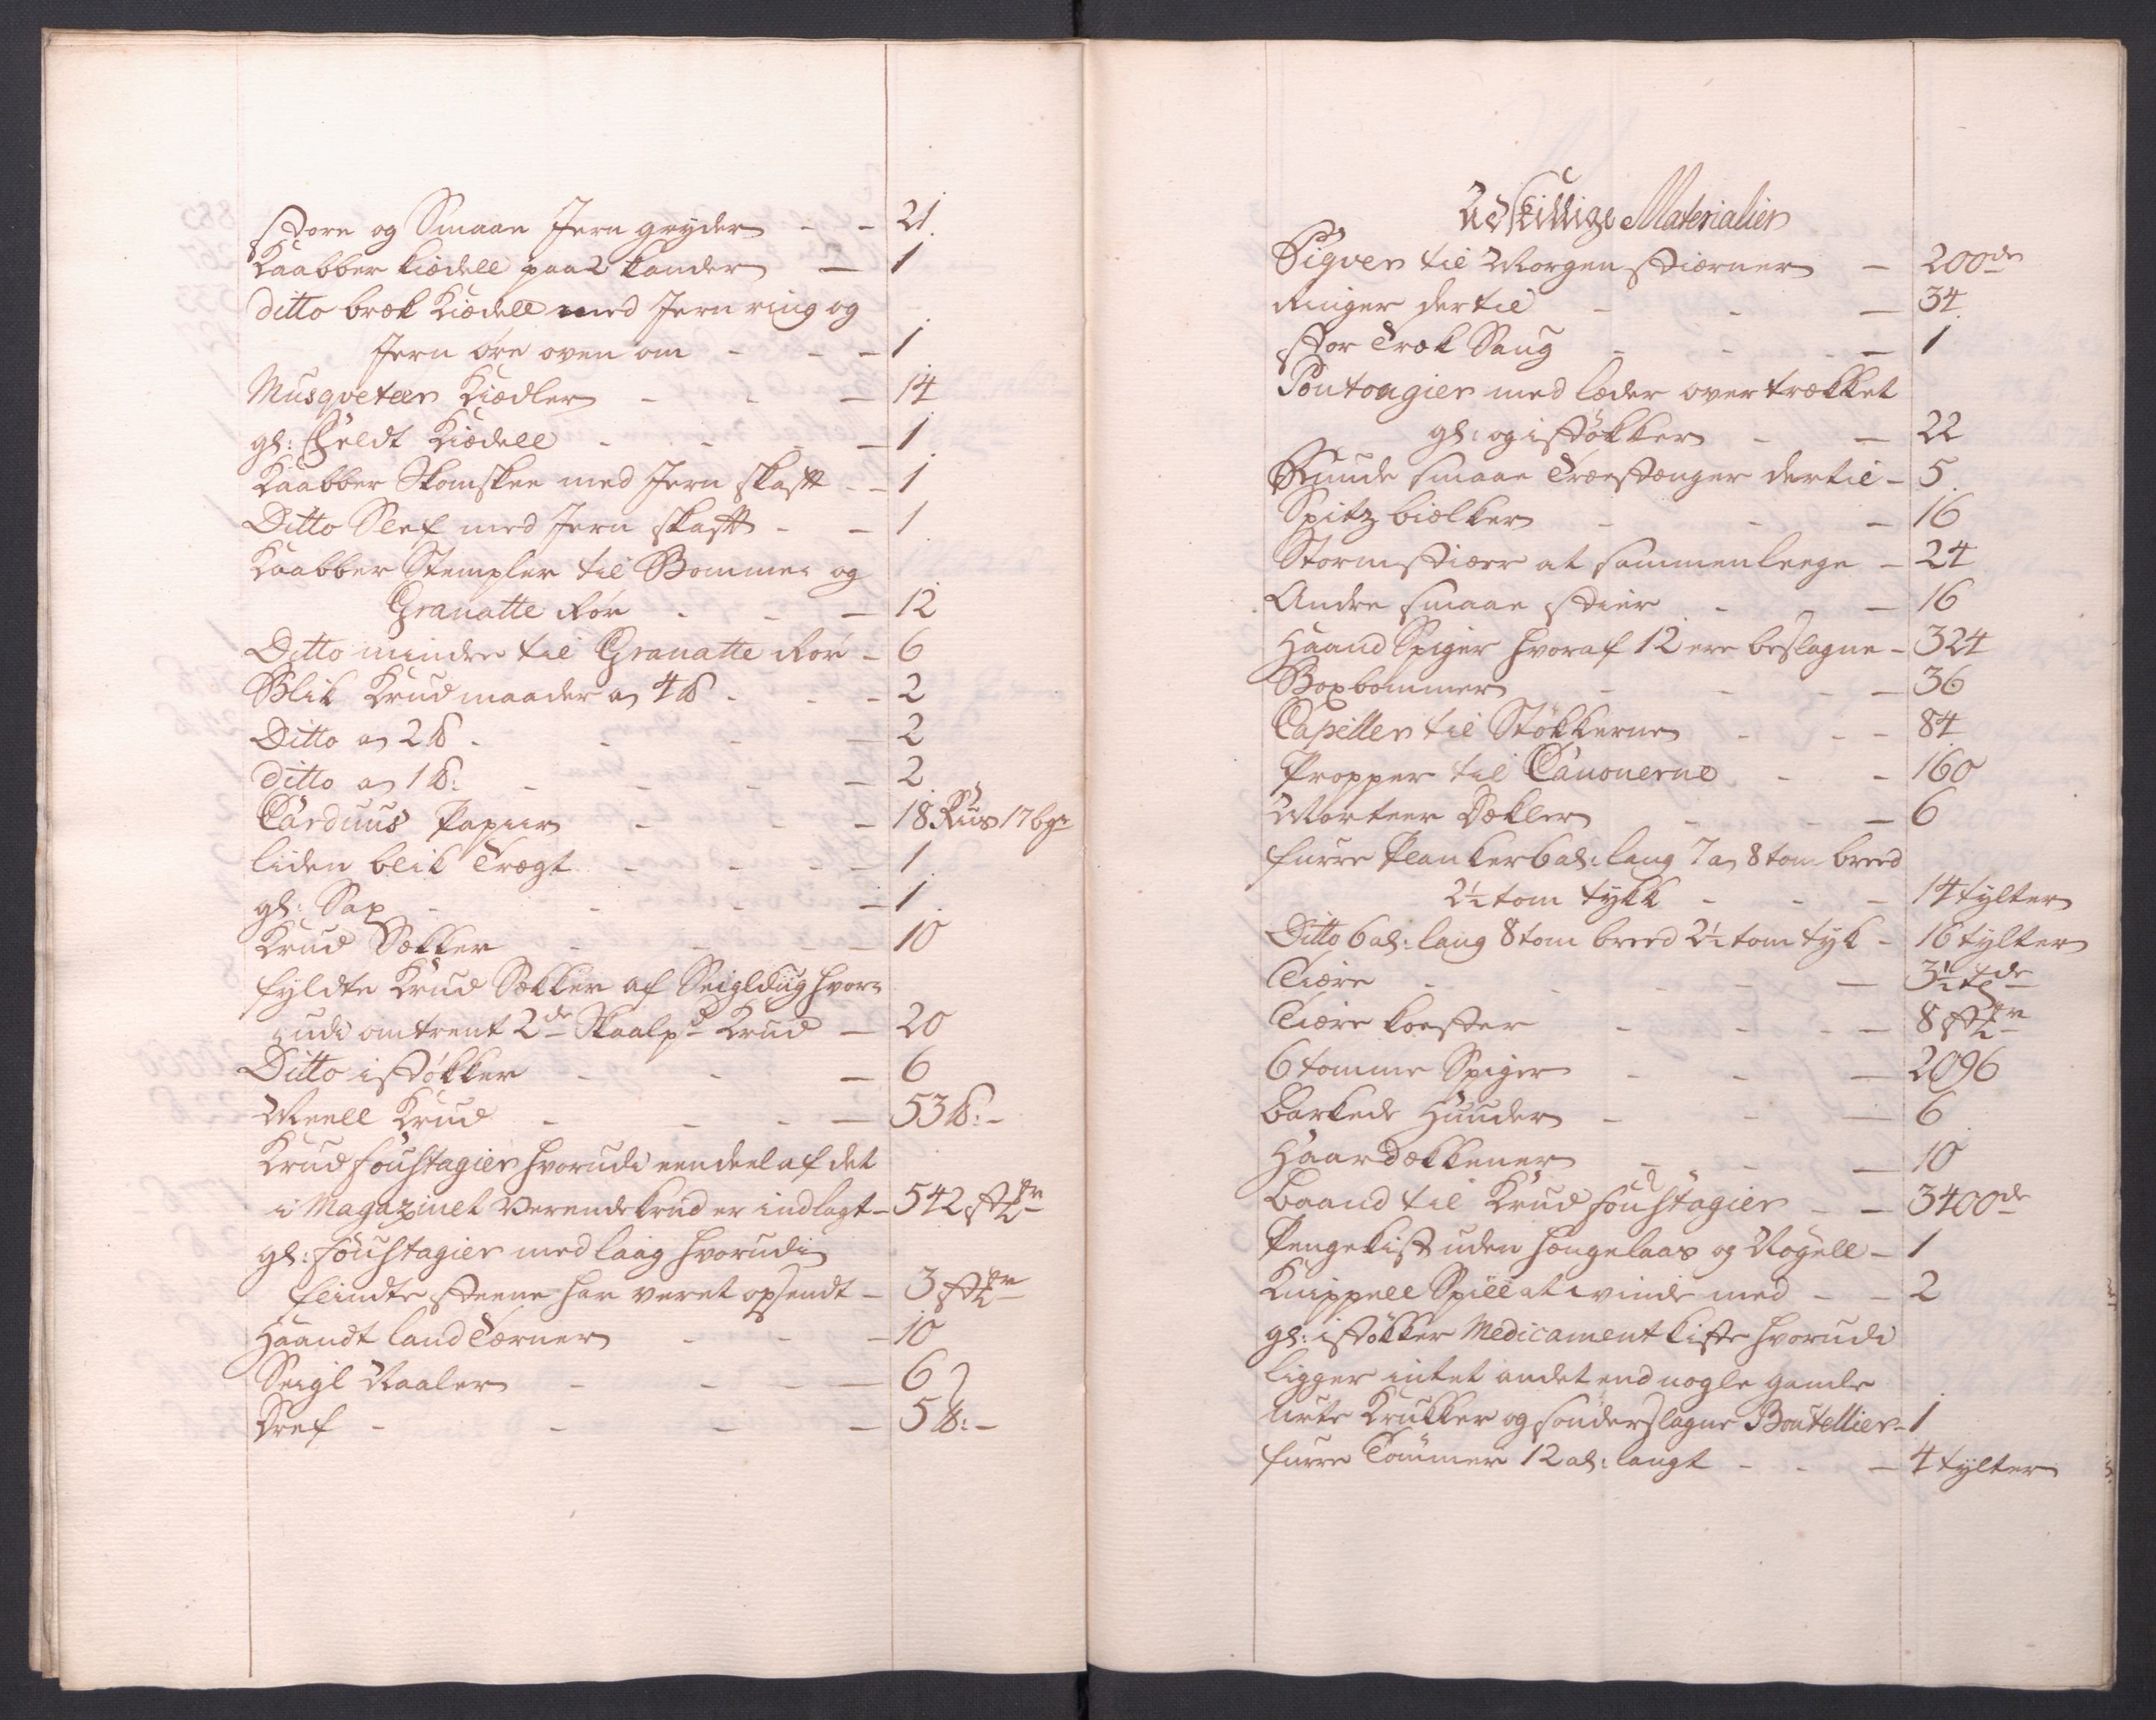 store og Smaae Jern gryder - - 21.
Kaabber kiedell paa 2 kander — 1
ditto bræk Kiedell med Jern ring og
Jern øre oven om - - - 1
Musqveteer Kiedler - - - 14
gl: Feldt Kiedell - - - 1
Kaabber Skomskee med Jern skaft - - 1
Ditto Sleef med Jern skaft - - 1
Kaabber Stempler til Bomme- og
Granatte Rør - - - 12
Ditto mindre til Granatte Rør - 6
Blik Krud maader a 4 ℔ - - - 2
Ditto a 2 ℔ - - - 2
ditto a 1 ℔: - - - 2
Carduus Papiir - - - 18 Riis 17 bgr
liden blik Tragt - - - 1
gl: Sax - - - 1
Krud Sækker - - - 10
fyldte Krud Sækker af Seigldug hvor-
udi omtrent 2de Skaalpd Krud — 20
Ditto i støkker - - - 6
Meell Krud - - - 53 ℔: -
Krud Foustagier hvorudi een deel af det
i Magazinet Værende krud er indlagt - 542 stkr
gl: Foustagier med laag hvorudi
flindte steene har været opsendt - 3 stkr
Haandt landTærner - - - 10
Seigl Naaler - - - 62
Dref - - - 5 ℔: -
Adskillige Materialier
Pigger til Morgen stierner - 200de
Ringer dertil - - - 34.
stor Træk Saug - - - 1
Pontongier med læder overtrækket
gl: og i støkker - - 22
Runde smaae Træstænger dertil - 5.
Spitz bielker - - - 16
Storm stiger at sammenlegge - 24
Andre smaae stier - - - 16
Haand Spiger hvoraf 12 ere beslagne - 324
Boxbommer - - - 36
Capeller til Støkkerne - - - 84
Propper til Canonerne - - 160
Morteer Dækler - - - 6
furre Planker 6 al: lang 7 a 8 tom breed
2½ tom tykk - - - 14 tylter
Ditto 6 al: lang 8 tom breed 2½ tom tyk - 16 tylter
Tiære - - - 3½ tdr
Tiære koster - - - 8 stkr
6 tomme Spiger - - - 2096
barkede Huuder - - - 6
Haardækkener - - - 10
baand til Krud Foustagier - - 3400de
Pengekist uden hængelaas og Nøgell - 1
Knippell Spill at vinde med - - 2
gl: i støkker Medicament kiste hvorudi
ligger intet andet end nogle gamle
urte Krukker og sønderslagne Bouteillier - 1
furre Tømmer 12 al: langt - - - 4 tylter